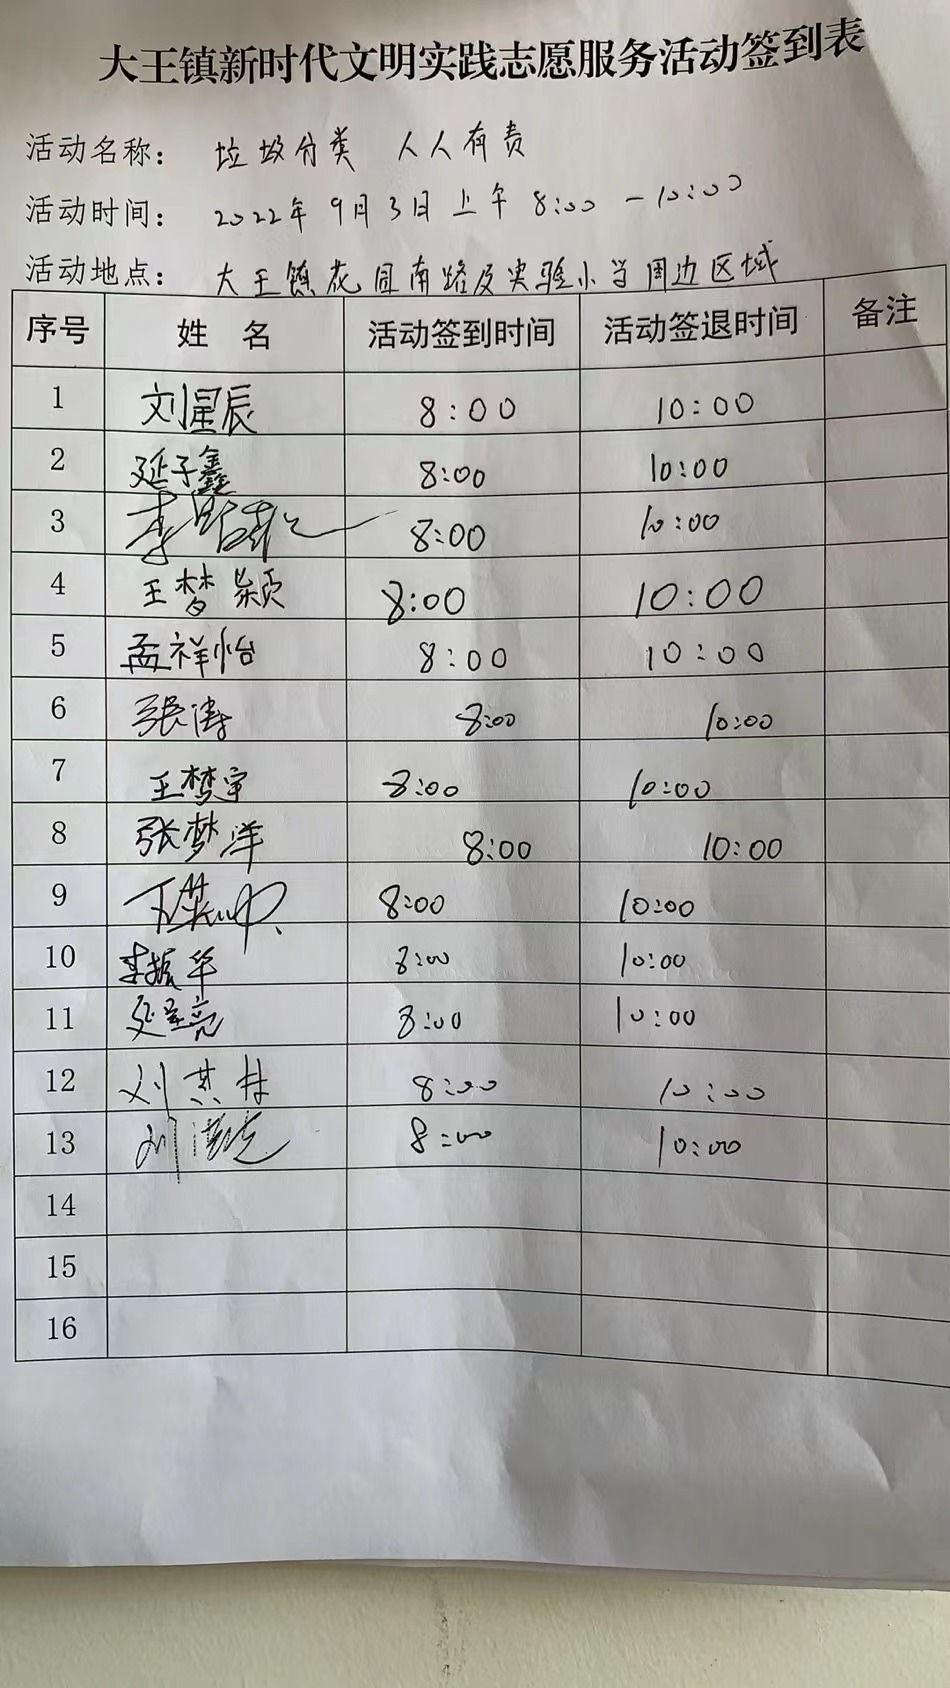 大王镇新时代文明实践志愿服务活动签到表
活动名称： 垃圾分类 人人有责
活动时间： 2022年9月3日上午 8:00 - 10:00
活动地点： 大王镇花园南路及实验小学周边区域
序号 姓名 活动签到时间 活动签退时间 备注
1 刘星辰 8:00 10:00
2 延子鑫 8:00 10:00
3 8:00 10:00
4 王梦颖 8:00 10:00
5 孟祥怡 8:00 10:00
6 张涛 8:00 10:00
7 王梦宇 8:00 10:00
8 张梦洋 8:00 10:00
9 8:00 10:00
10 李振华 8:00 10:00
11 8:00 10:00
12 8:00 10:00
13 8:00 10:00
14
15
16